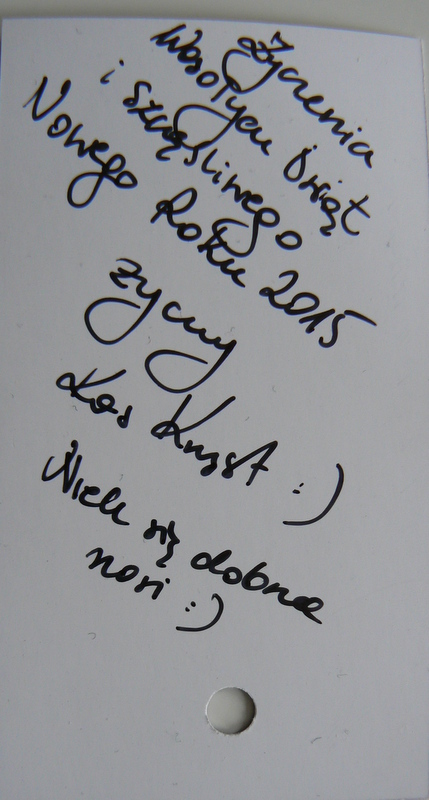 Życzenia
Wesołych Świąt
i Szczęśliwego
Nowego Roku 2015
życzy
Kas Kryst :)
Niech się dobrze
nosi :)